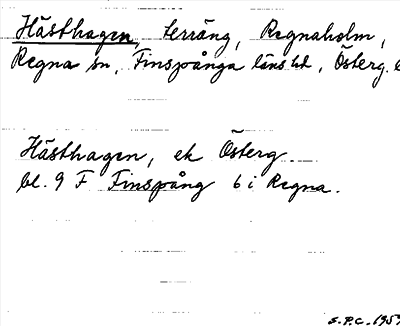 Hästhagen, terräng, Regnaholm,
Regna sn, Finspånga läns hd, Österg.
Hästhagen, ek Österg
bl. 9 F Finspång 6 i Regna.
S.P.C. 1959